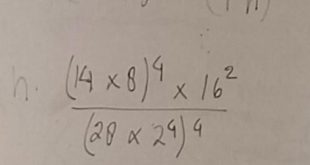 h. (14 × 8)⁴ × 16²
(28 × 2⁴)⁴